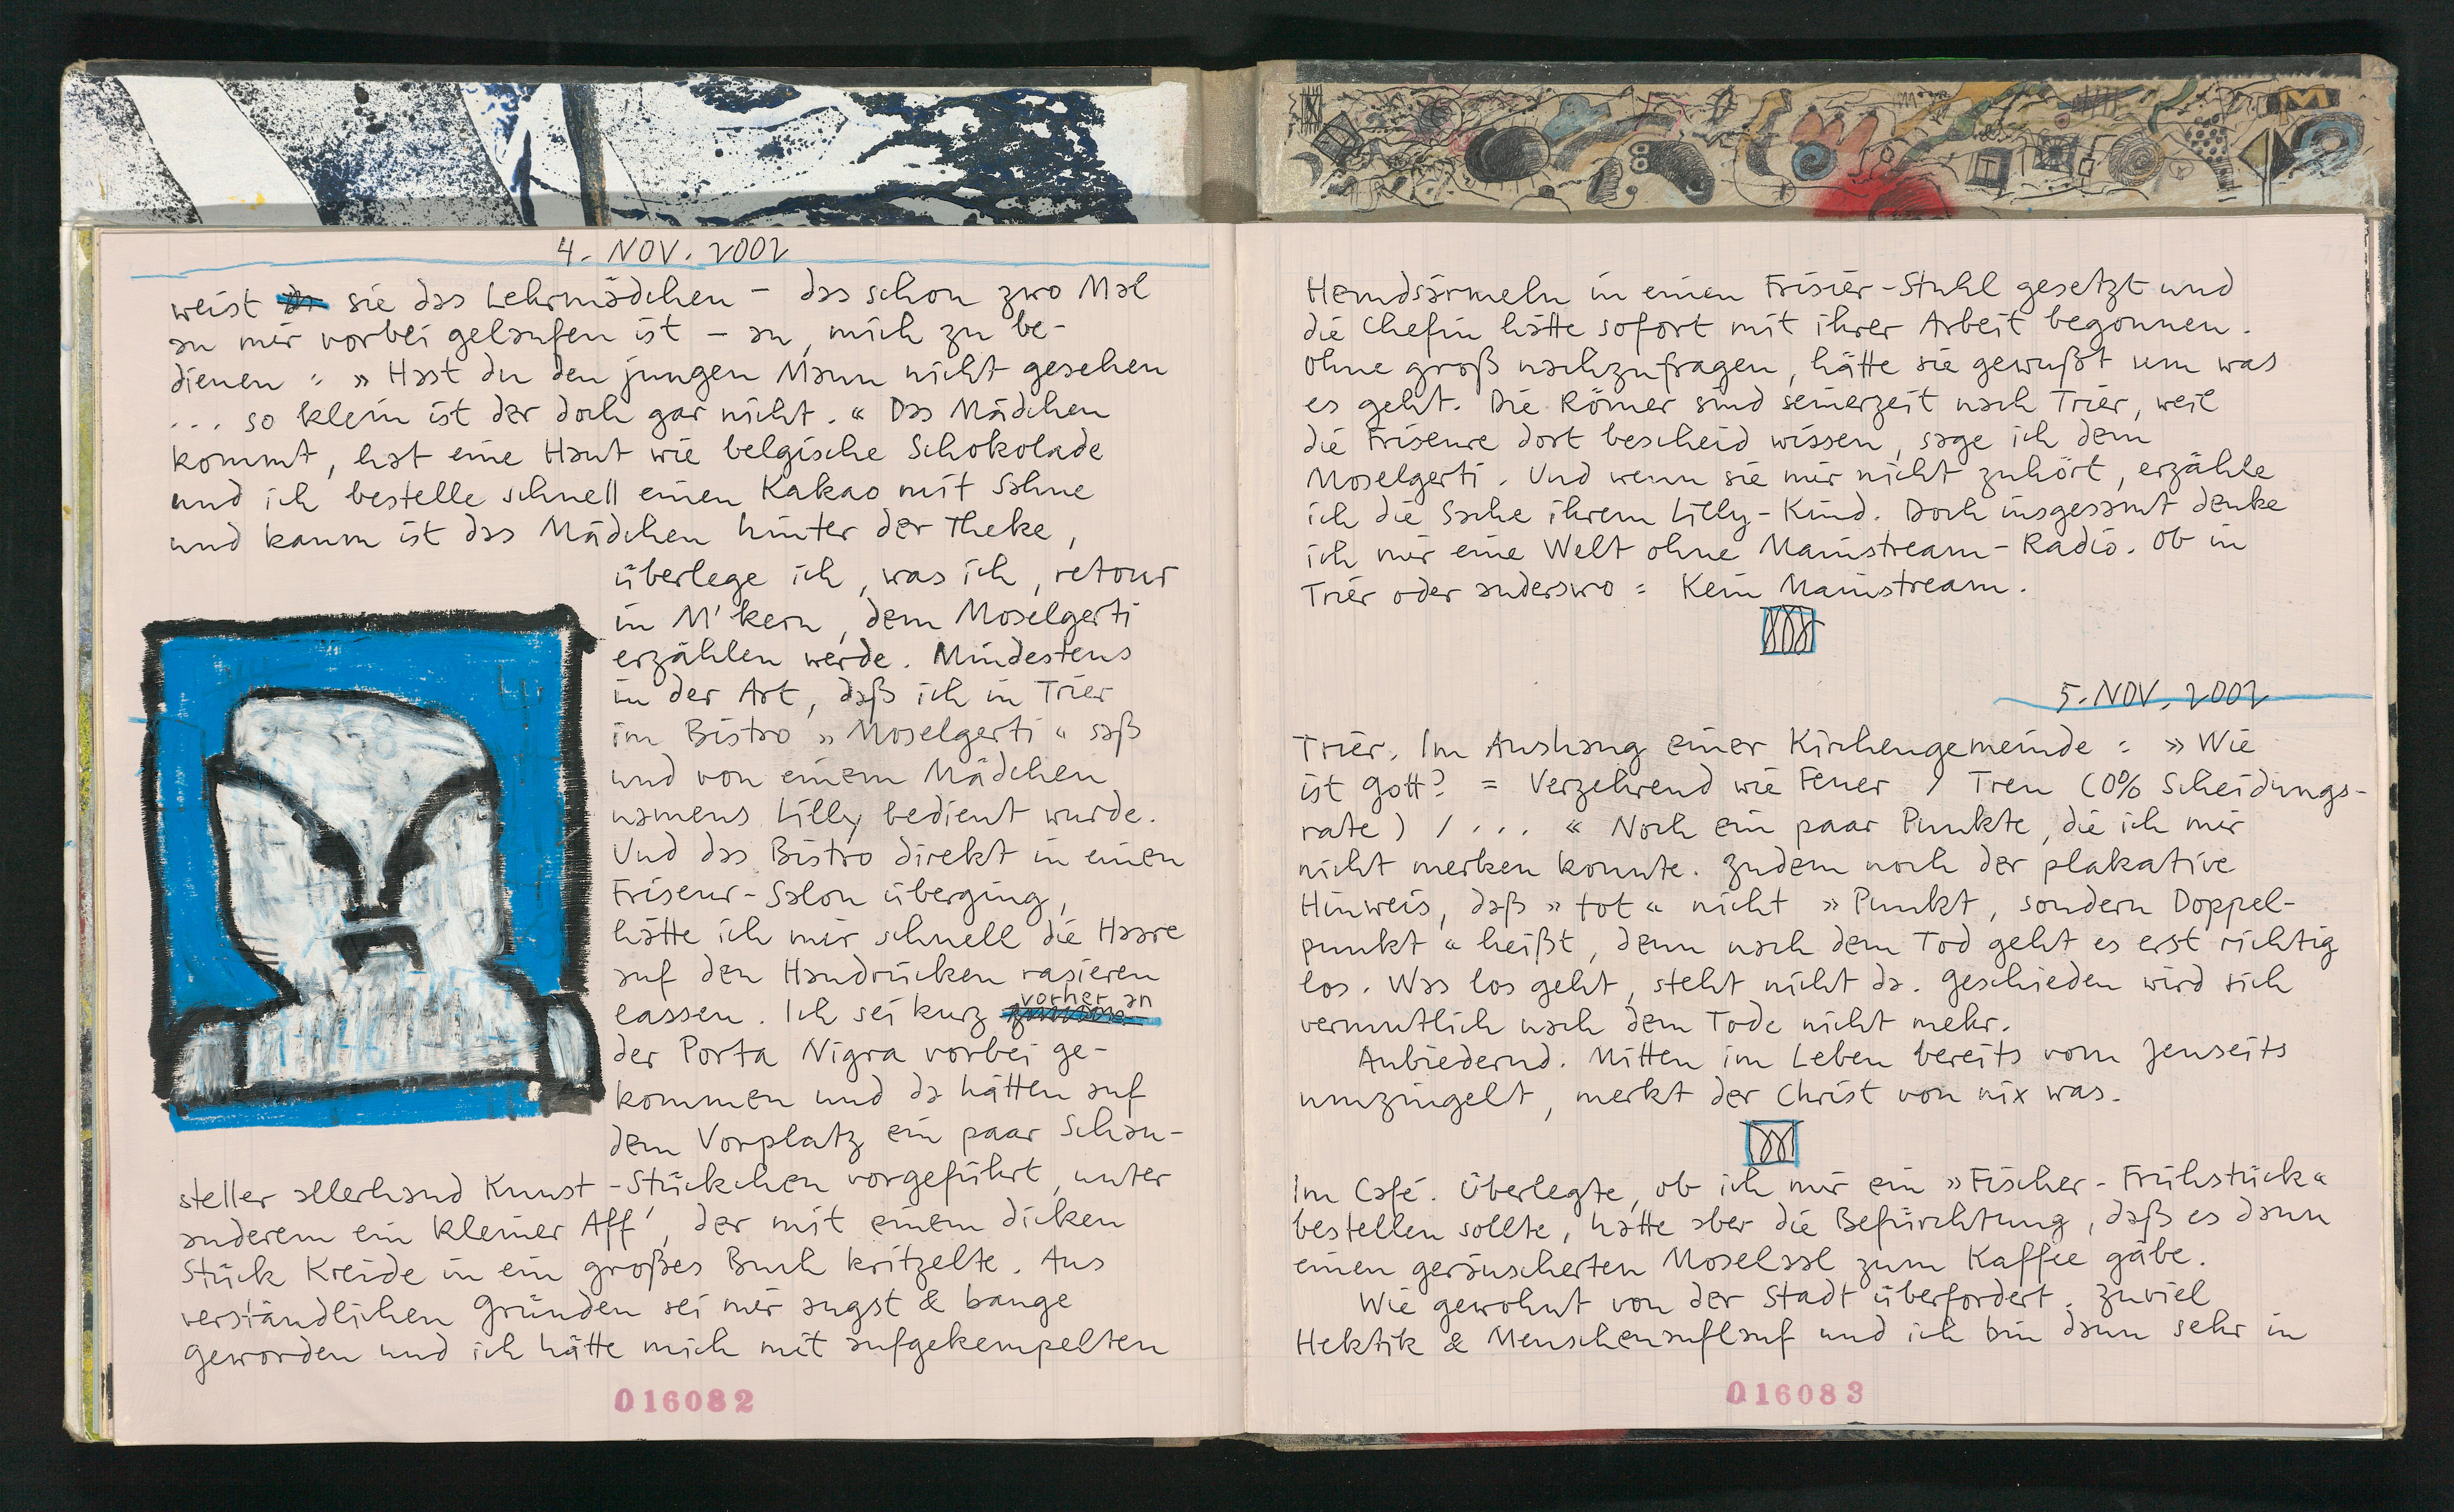 4. NOV. 2002
weist sie das Lehrmädchen – das schon zwo Mal
an mir vorbei gelaufen ist – an, mich zu be-
dienen : » Hast du den jungen Mann nicht gesehen
... so klein ist der doch gar nicht. « Das Mädchen
kommt, hat eine Haut wie belgische Schokolade
und ich bestelle schnell einen Kakao mit Sahne
und kaum ist das Mädchen hinter der Theke,
überlege ich, was ich, retour
in M'kern, dem Moselgerti
erzählen werde. Mindestens
in der Art, daß ich in Trier
im Bistro » Moselgerti « saß
und von einem Mädchen
namens Lilly bedient wurde.
Und das Bistro direkt in einen
Friseur-Salon überging,
hätte ich mir schnell die Haare
auf den Handrücken rasieren
lassen. Ich sei kurz vorher an
der Porta Nigra vorbei ge-
kommen und da hätten auf
dem Vorplatz ein paar Schau-
steller allerhand Kunst-Stückchen vorgeführt, unter
anderem ein kleiner Aff', der mit einem dicken
Stück Kreide in ein großes Buch kritzelte. Aus
verständlichen Gründen sei mir angst & bange
geworden und ich hätte mich mit aufgekempelten
016082
Hemdsärmeln in einen Frisier-Stuhl gesetzt und
die Chefin hätte sofort mit ihrer Arbeit begonnen.
Ohne groß nachzufragen, hätte sie gewußt um was
es geht. Die Römer sind seinerzeit nach Trier, weil
die Friseure dort bescheid wissen, sage ich dem
Moselgerti. Und wenn sie mir nicht zuhört, erzähle
ich die Sache ihrem Lilly-Kind. Doch insgesamt denke
ich mir eine Welt ohne Mainstream-Radio. Ob in
Trier oder anderswo : Kein Mainstream.
5. NOV. 2002
Trier. Im Aushang einer Kirchengemeinde : » Wie
ist Gott? = Verzehrend wie Feuer / Treu (0% Scheidungs-
rate) / ... « Noch ein paar Punkte, die ich mir
nicht merken konnte. Zudem noch der plakative
Hinweis, daß » tot « nicht » Punkt, sondern Doppel-
punkt « heißt, denn nach dem Tod geht es erst richtig
los. Was los geht, steht nicht da. Geschieden wird sich
vermutlich nach dem Tode nicht mehr.
Anbiedernd. Mitten im Leben bereits vom Jenseits
umzingelt, merkt der Christ von nix was.
Im Café. Überlegte, ob ich mir ein » Fischer-Frühstück «
bestellen sollte, hatte aber die Befürchtung, daß es dann
einen geräucherten Moselaal zum Kaffee gäbe.
Wie gewohnt von der Stadt überfordert. Zuviel
Hektik & Menschenauflauf und ich bin dann sehr in
016083